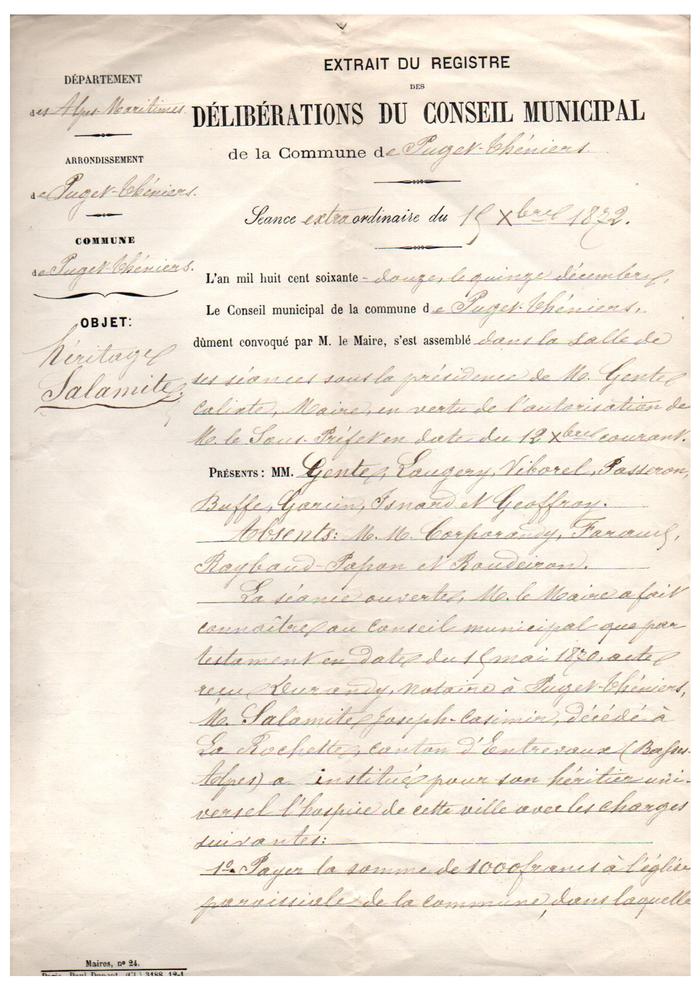 DÉPARTEMENT
des Alpes Maritimes.
ARRONDISSEMENT
de Puget-Théniers.
COMMUNE
de Puget-Théniers.
OBJET:
héritage
Salamite.
EXTRAIT DU REGISTRE
DES
DÉLIBÉRATIONS DU CONSEIL MUNICIPAL
de la Commune de Puget-Théniers.
Séance extraordinaire du 15 Xbre 1872.
L'an mil huit cent soixante-douze, le quinze décembre,
Le Conseil municipal de la commune de Puget-Théniers,
dûment convoqué par M. le Maire, s'est assemblé dans la salle de
ses séances sous la présidence de M. Gente
Calixte, Maire, en vertu de l'autorisation de
M. le Sous-Préfet en date du 12 Xbre courant.
PRÉSENTS: MM. Gente, Laugery, Viborel, Passeron,
Buffe, Garcin, Isnard et Geoffroy.
Absents: M. M. Corporandy,
Raybaud-Papon et Roudeiron.
La séance ouverte, M. le Maire a fait
connaître au conseil municipal que par
testament en date du 15 mai 1870, acte
reçu Durandy, notaire à Puget-Théniers,
M. Salamite Joseph-Casimir, décédé à
La Rochette, canton d'Entrevaux (Basses-
Alpes) a institué pour son héritier uni-
versel l'hospice de cette ville avec les charges
suivantes:
1º. Payer la somme de 1000 francs à l'église
paroissiale de la commune, dans laquelle
Maires, nº 24.